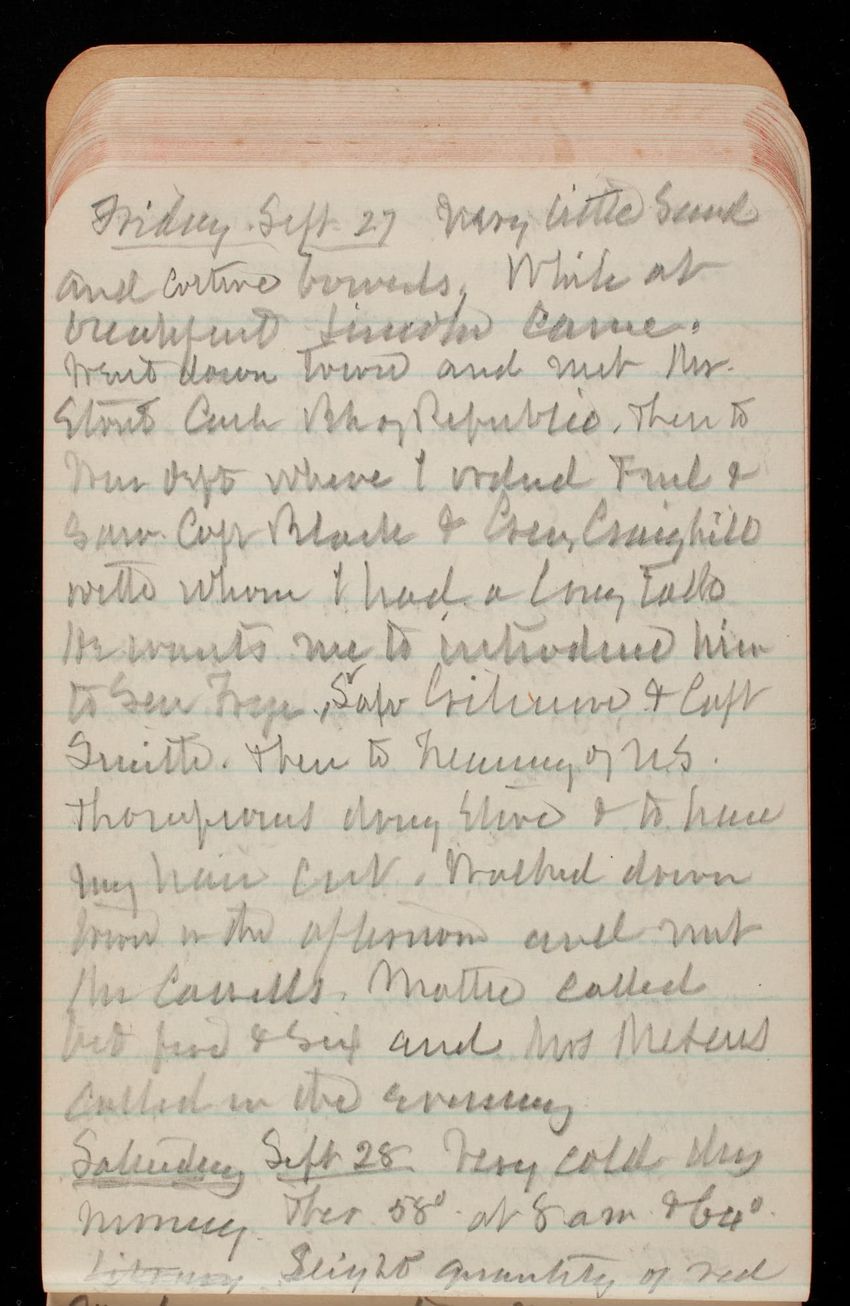 Friday Sept 27 Very little Sand
and costive bowels. While at
breakfast Lincoln came.
Went down town and met Mr.
Stout Cash Bk of Republic. Then to
War Dept where I ordered Fuel &
Saw Capt Black & Genl Craighill
with whom I had a long talk
He wants me to introduce him
to Gen Frye. Saw Gilmore & Capt
Smith. Then to Treasury of U.S.
Thompsons drug Store & to have
my hair cut. Walked down
town in the afternoon and met
Mr Mattie called
bet five & six and Mrs
called in the evening
Saturday Sept 28. Very cold dry
morning. Ther 58° at 8 am & 64°
Library Slight quantity of red